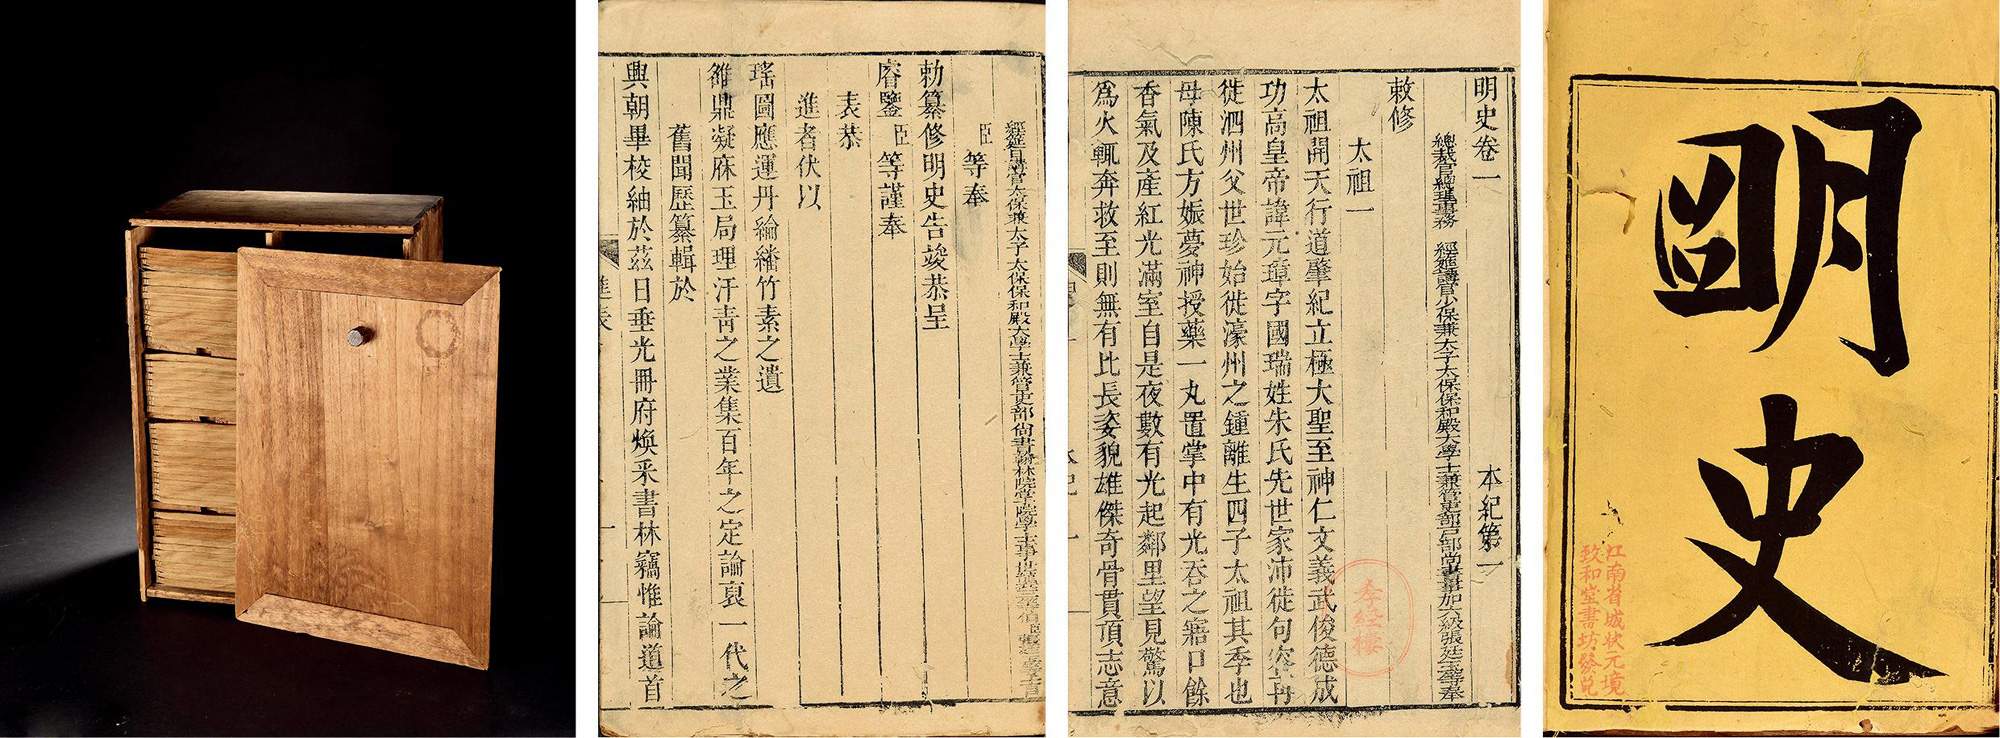 經筵日講官太保兼太子太保保和殿大學士兼管吏部尚書翰林院掌院學士事世襲三等伯臣張廷玉等上言
臣等奉
勅纂修明史告竣恭呈
睿鑒臣等謹奉
表恭
進者伏以
瑤圖應運丹綸繙竹素之遺
雒鼎凝庥玉局理汗靑之業集百年之定論裒一代之
舊聞歷纂輯於
興朝畢校紬於茲日垂光冊府煥采書林竊惟論道首
進表
明史卷一 本紀第一
總裁官總理事務 經筵講官少保兼太子太保保和殿大學士兼管吏部戶部尚書事加六級張廷玉等奉
敕修
太祖一
太祖開天行道肇紀立極大聖至神仁文義武俊德成
功高皇帝諱元璋字國瑞姓朱氏先世家沛徙句容再
徙泗州父世珍始徙濠州之鍾離生四子太祖其季也
母陳氏方娠夢神授藥一丸置掌中有光吞之寤口餘
香氣及產紅光滿室自是夜數有光起鄰里望見驚以
爲火輒奔救至則無有比長姿貌雄傑奇骨貫頂志意
明史
江南省城狀元境
致和堂書坊發兌